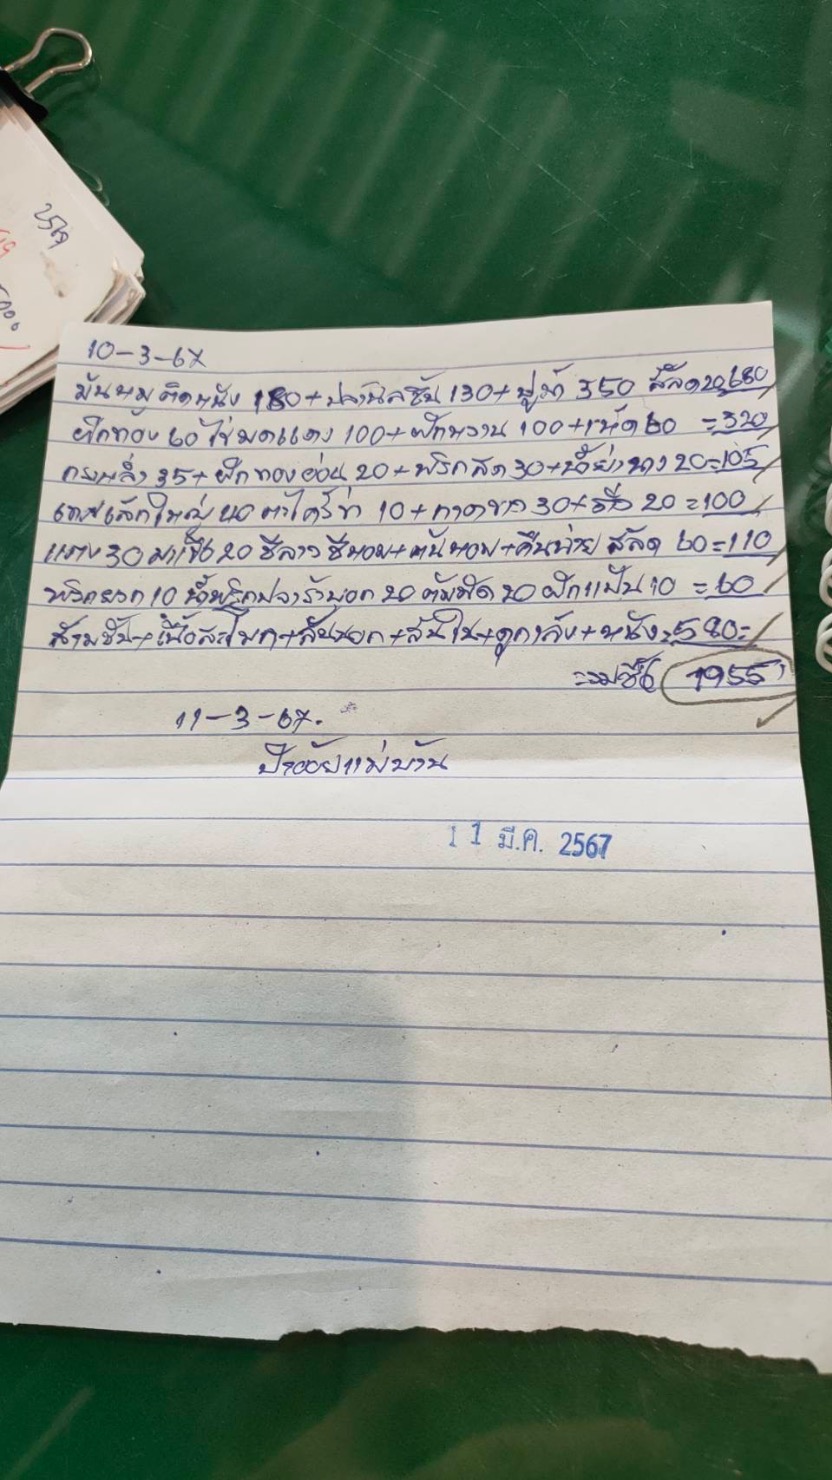 2567
5000
10-3-67
มันหมูติดหนัง 180+ปลานิลชิ้น 130+ปูม้า 350 สลัด 20 680
ฟักทอง 60 ไข่มดแดง 100+ผักหวาน 100+เห็ด 60 =320
กะหล่ำ 35+ฟักทองอ่อน 20+พริกสด 30+น้ำย่านาง 20=105
เล็กใหญ่ 40 ตะไคร้ข่า 10+ 30+ 20=100
แตง 30 มะเขือ 20 ชีลาวชีหอม+ต้นหอม+คืนช่าย สลัด 60=110
พริก 10 น้ำพริกปลาร้าบอก 20 20 10 =60
สามชั้น+เนื้อสะโพก+สันนอก+สันใน+ดูก +หนัง=580=
รวมซื้อ 1955
11-3-67.
ป้าอ้อยแม่บ้าน
11 มี.ค. 2567